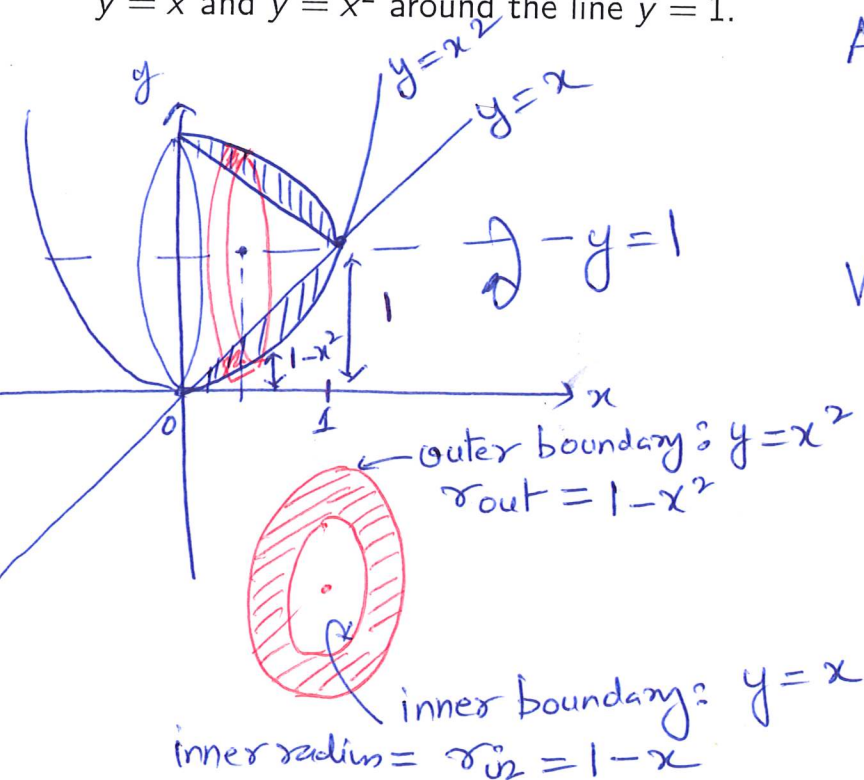 y = x and y = x² around the line y = 1.
A
y
y=x²
y=x
-y=1
1
1-x²
x
0
1
outer boundary: y=x²
rout = 1-x²
inner boundary: y=x
inner radius = rin = 1-x